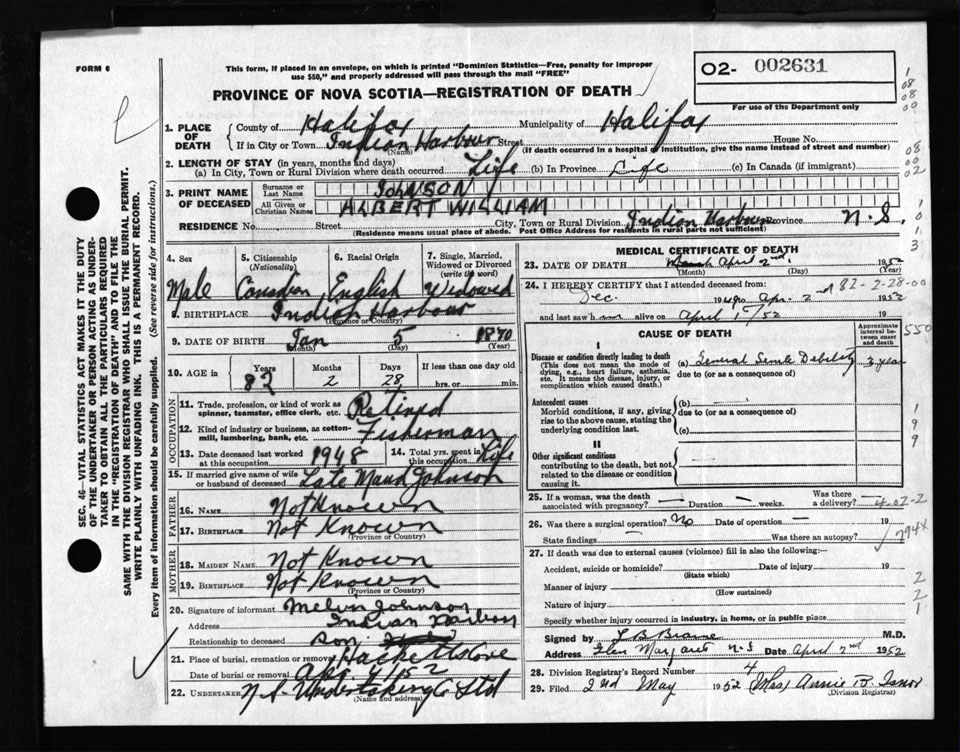 FORM 6
This form, if placed in an envelope, on which is printed "Dominion Statistics—Free, penalty for improper
use $50," and properly addressed will pass through the mail "FREE"
02- 002631
For use of the Department only
PROVINCE OF NOVA SCOTIA—REGISTRATION OF DEATH
SEC. 46—VITAL STATISTICS ACT MAKES IT THE DUTY
OF THE UNDERTAKER OR PERSON ACTING AS UNDER-
TAKER TO OBTAIN ALL THE PARTICULARS REQUIRED
IN THE "REGISTRATION OF DEATH" AND TO FILE THE
SAME WITH THE DIVISION REGISTRAR WHO SHALL ISSUE THE BURIAL PERMIT.
WRITE PLAINLY WITH UNFADING INK. THIS IS A PERMANENT RECORD.
Every item of information should be carefully supplied. (See reverse side for instructions.)
1. PLACE OF DEATH County of Halifax Municipality of Halifax
If in City or Town Indian Harbour Street House No.
(Name) (If death occurred in a hospital or institution, give the name instead of street and number)
2. LENGTH OF STAY (in years, months and days)
(a) In City, Town or Rural Division where death occurred Life (b) In Province Life (c) In Canada (if immigrant)
3. PRINT NAME OF DECEASED Surname or Last Name JOHNSON
All Given or Christian Names ALBERT WILLIAM
RESIDENCE No. Street City, Town or Rural Division Indian Harbour Province N.S.
(Residence means usual place of abode. Post Office Address for residents in rural parts not sufficient)
4. Sex 5. Citizenship (Nationality) 6. Racial Origin 7. Single, Married, Widowed or Divorced (write the word)
Male Canadian English Widowed
8. BIRTHPLACE Indian Harbour
(Province or Country)
9. DATE OF BIRTH Jan 5 1870
(Month) (Day) (Year)
10. AGE in Years Months Days If less than one day old
82 2 28 hrs. or min.
OCCUPATION
11. Trade, profession, or kind of work as spinner, teamster, office clerk, etc. Retired
12. Kind of industry or business, as cotton-mill, lumbering, bank, etc. Fisherman
13. Date deceased last worked at this occupation 1948 14. Total yrs. spent in this occupation Life
15. If married give name of wife or husband of deceased Late Maud Johnson
FATHER
16. NAME Not Known
17. BIRTHPLACE Not Known
(Province or Country)
MOTHER
18. MAIDEN NAME Not Known
19. BIRTHPLACE Not Known
(Province or Country)
20. Signature of informant Melvin Johnson
Address Indian Harbour
Relationship to deceased son
21. Place of burial, cremation or removal Hacketts Cove
Date of burial or removal Apr. 4/52
22. UNDERTAKER N.S. Undertaking Co Ltd
(Name and address)
MEDICAL CERTIFICATE OF DEATH
23. DATE OF DEATH April 2nd 1952
(Month) (Day) (Year)
24. I HEREBY CERTIFY that I attended deceased from: 82-2-28-00
Dec. 19 to Apr. 2 1952
and last saw h alive on April 1st/52
CAUSE OF DEATH
Approximate interval between onset and death
I
Disease or condition directly leading to death (a) General Senile Debility 3 years
(This does not mean the mode of dying, e.g., heart failure, asthenia, etc. It means the disease, injury, or complication which caused death.)
due to (or as a consequence of)
Antecedent causes (b)
Morbid conditions, if any, giving rise to the above cause, stating the underlying condition last.
due to (or as a consequence of)
(c)
II
Other significant conditions
contributing to the death, but not related to the disease or condition causing it.
25. If a woman, was the death associated with pregnancy? — Duration — weeks. Was there a delivery?
26. Was there a surgical operation? No Date of operation — 19
State findings — Was there an autopsy?
27. If death was due to external causes (violence) fill in also the following:—
Accident, suicide or homicide? Date of injury 19
(State which)
Manner of injury
(How sustained)
Nature of injury
Specify whether injury occurred in industry, in home, or in public place
Signed by L B Braine M.D.
Address Glen Margaret N.S Date April 2nd 1952
28. Division Registrar's Record Number 4
29. Filed 2nd May 1952 Mrs Annie B. Isnor
(Division Registrar)